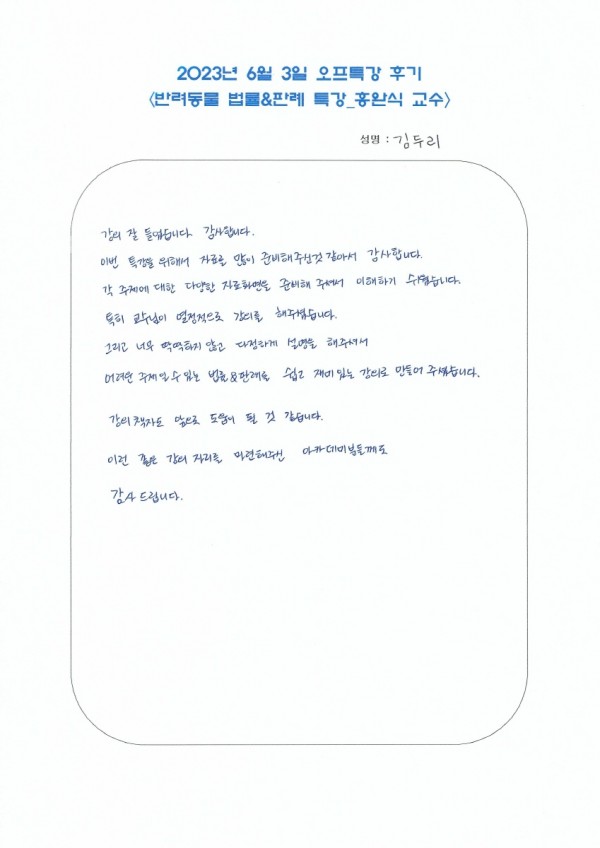 2023년 6월 3일 오프특강 후기
<반려동물 법률&판례 특강_홍완식 교수>
성명 : 김두리
강의 잘 들었습니다. 감사합니다.
이번 특강을 위해서 자료를 많이 준비해주신것 같아서 감사합니다.
각 주제에 대한 다양한 자료화면을 준비해 주셔서 이해하기 쉬웠습니다.
특히 교수님이 열정적으로 강의를 해주셨습니다.
그리고 너무 딱딱하지 않고 다정하게 설명을 해주셔서
어려운 주제일 수 있는 법률&판례를 쉽고 재미있는 강의로 만들어 주셨습니다.
강의책자도 앞으로 도움이 될 것 같습니다.
이런 좋은 강의 자리를 마련해주신 아카데미분들께도
감사드립니다.